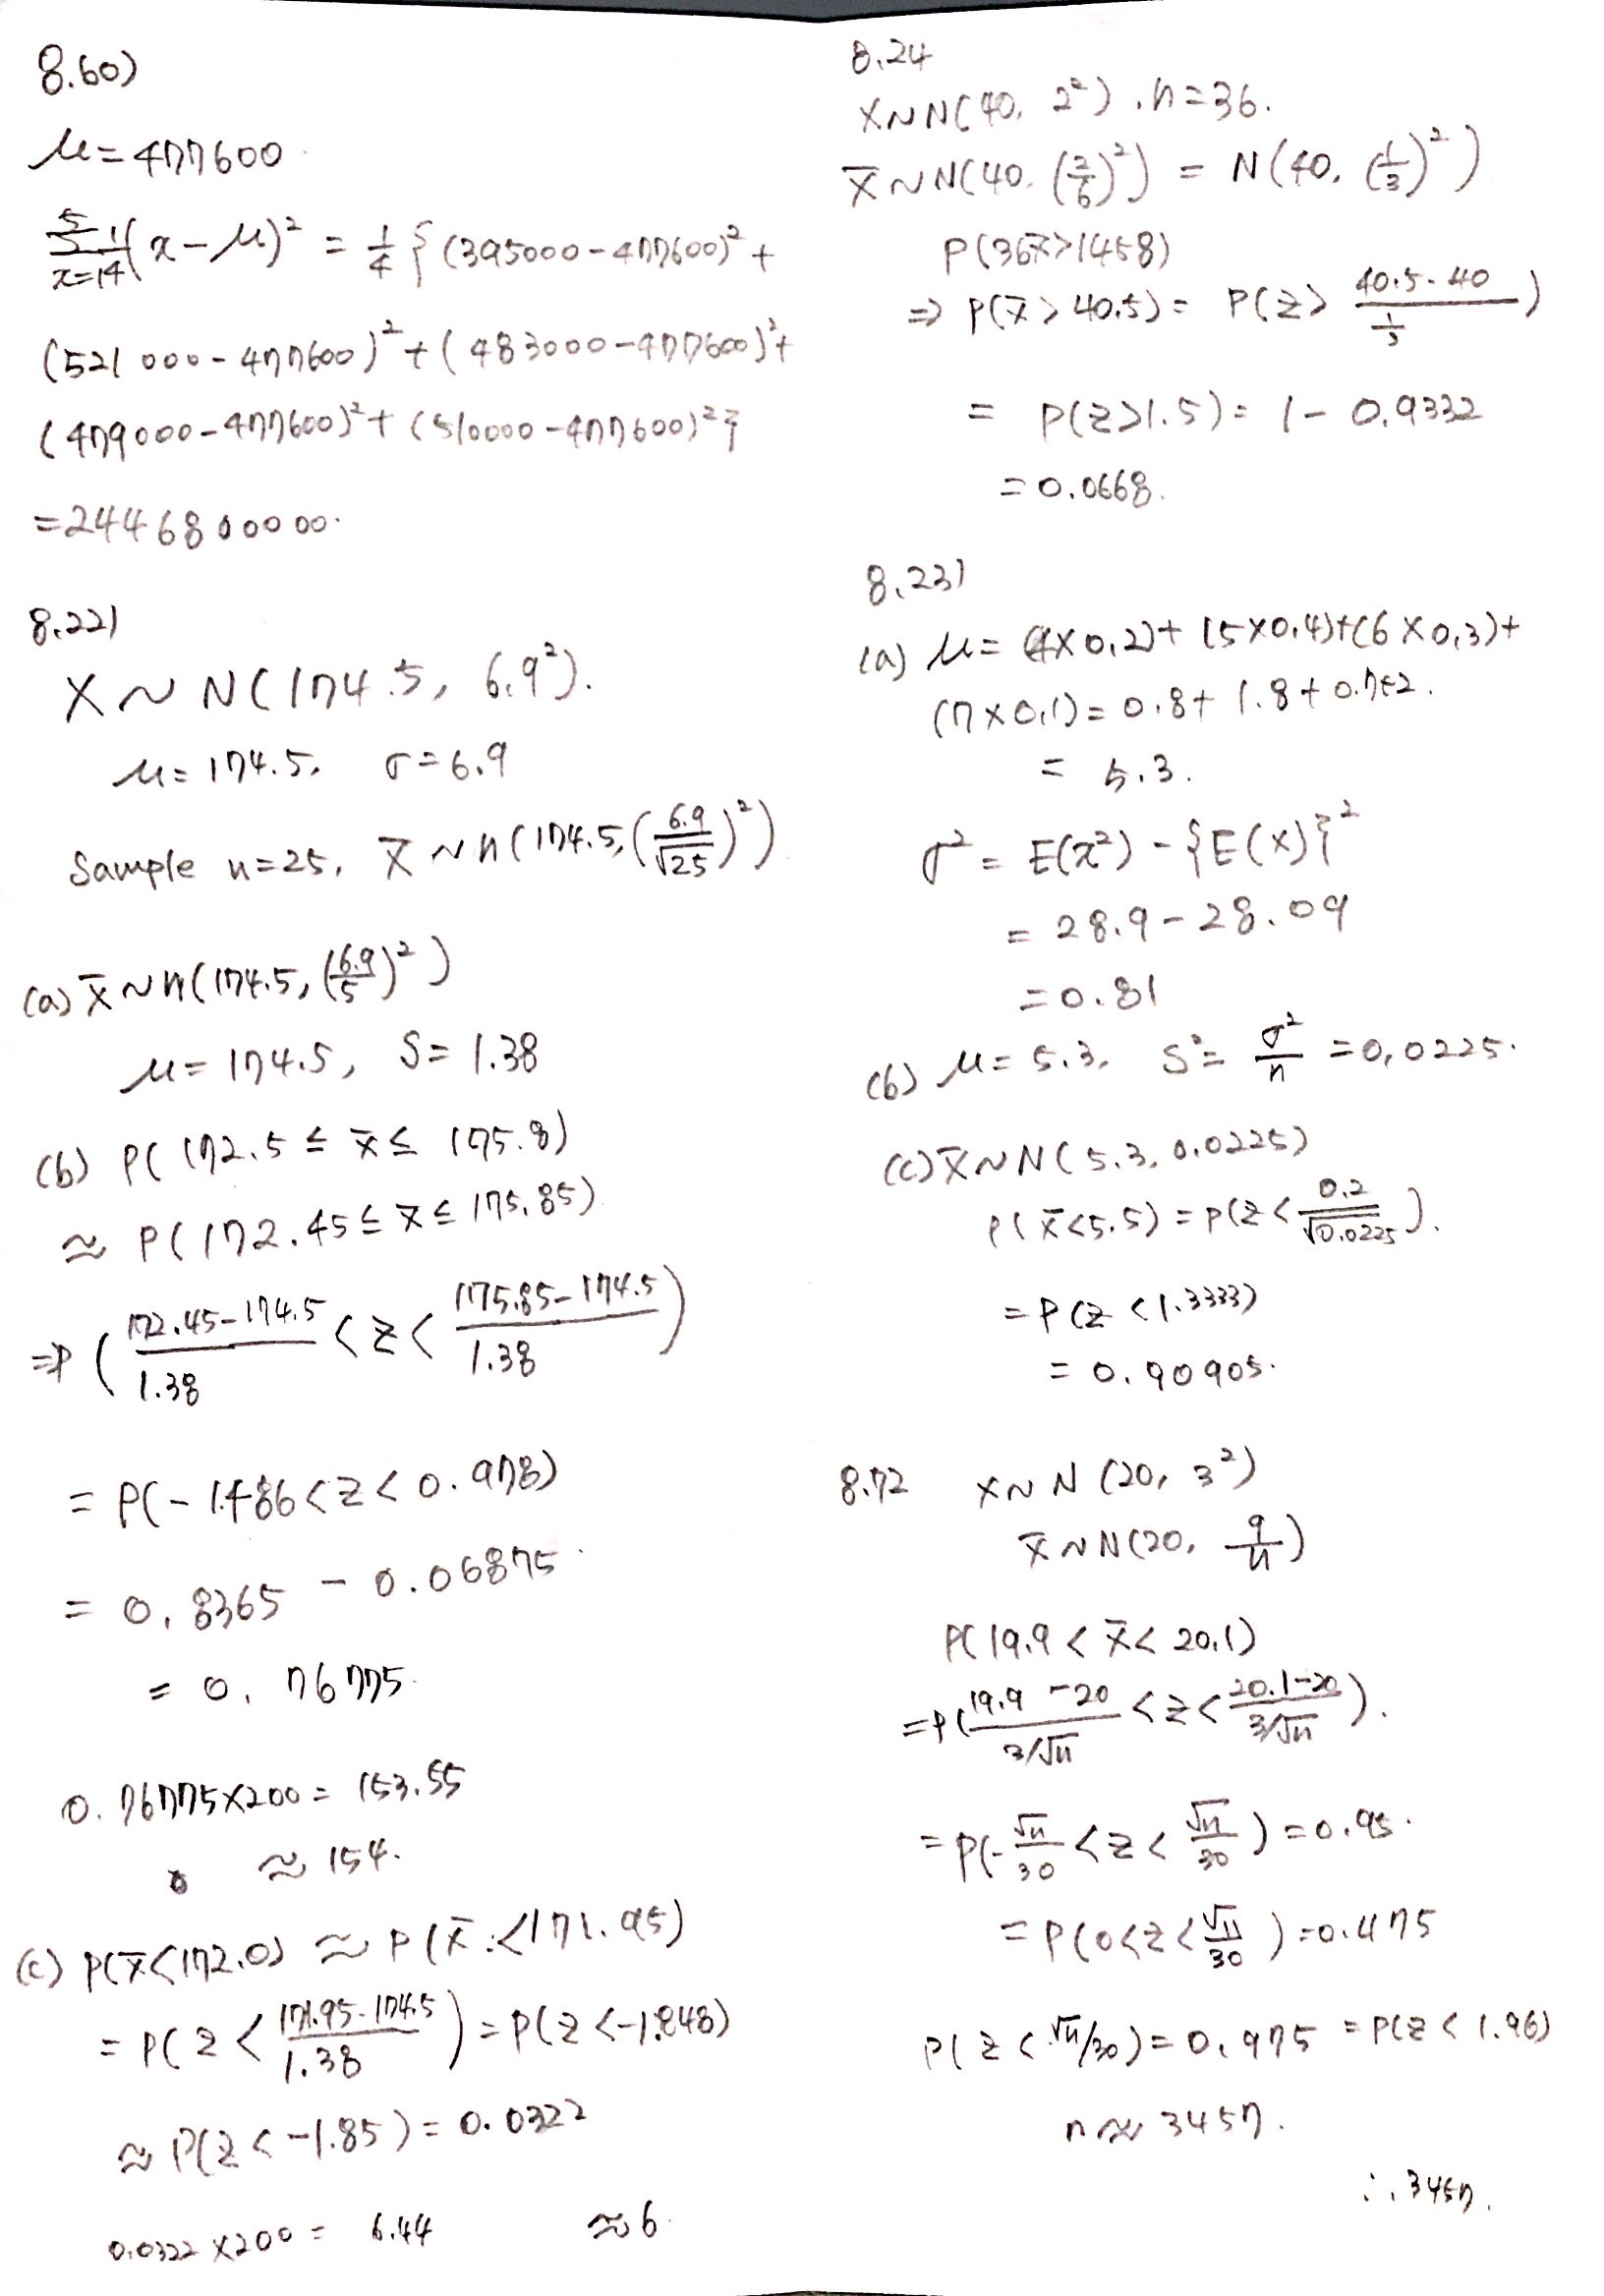 8.60)
μ = 477600
5/Σ/x=1 1/4 (x - μ)² = 1/4 { (395000 - 477600)² +
(521000 - 477600)² + (483000 - 477600)² +
(479000 - 477600)² + (510000 - 477600)² }
= 2446800000.
8.22)
X ~ N(174.5, 6.9²).
μ = 174.5, σ = 6.9
Sample n = 25, X̄ ~ n(174.5, (6.9/√25)²)
(a) X̄ ~ n(174.5, (6.9/5)²)
μ = 174.5, S = 1.38
(b) P(172.5 ≤ x̄ ≤ 175.8)
≈ P(172.45 ≤ x̄ ≤ 175.85)
⇒ P( (172.45 - 174.5)/1.38 < z < (175.85 - 174.5)/1.38 )
= P(-1.486 < z < 0.978)
= 0.8365 - 0.06875
= 0.76775
0.76775 × 200 = 153.55
≈ 154.
(c) P(x̄ < 172.0) ≈ P(x̄ < 171.95)
= P(z < (171.95 - 174.5)/1.38) = P(z < -1.848)
≈ P(z < -1.85) = 0.0322
0.0322 × 200 = 6.44 ≈ 6
8.24
X ~ N(40, 2²), n = 36.
X̄ ~ N(40, (2/6)²) = N(40, (1/3)²)
P(36x̄ > 1458)
⇒ P(x̄ > 40.5) = P(z > (40.5 - 40)/(1/3))
= P(z > 1.5) = 1 - 0.9332
= 0.0668.
8.23)
(a) μ = (4 × 0.2) + (5 × 0.4) + (6 × 0.3) +
(7 × 0.1) = 0.8 + 1.8 + 0.7 + 2.
= 5.3.
σ² = E(x²) - {E(x)}²
= 28.9 - 28.09
= 0.81
(b) μ = 5.3, S² = σ²/n = 0.0225.
(c) X̄ ~ N(5.3, 0.0225)
P(x̄ < 5.5) = P(z < 0.2/√0.0225).
= P(z < 1.3333)
= 0.90905.
8.72 X ~ N(20, 3²)
X̄ ~ N(20, 9/n)
P(19.9 < x̄ < 20.1)
= P( (19.9 - 20)/(3/√n) < z < (20.1 - 20)/(3/√n) ).
= P(-√n/30 < z < √n/30) = 0.95.
= P(0 < z < √n/30) = 0.475
P(z < √n/30) = 0.975 = P(z < 1.96)
n ≈ 3457.
∴ 3457.